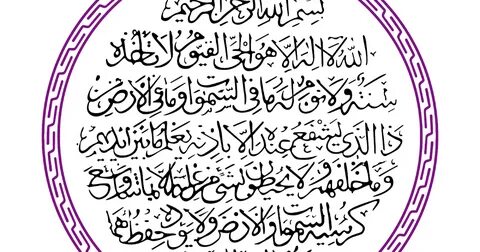 بسم الله الرحمن الرحيم
الله لا اله الا هو الحي القيوم لا تأخذه
سنة ولا نوم له ما في السموات وما في الارض
ذا الذي يشفع عنده الا باذنه يعلم ما بين ايديهم
وما خلفهم ولا يحيطون بشئ من علمه الا بما شاء وسع
كرسيه السموات والارض ولا يؤده حفظهما